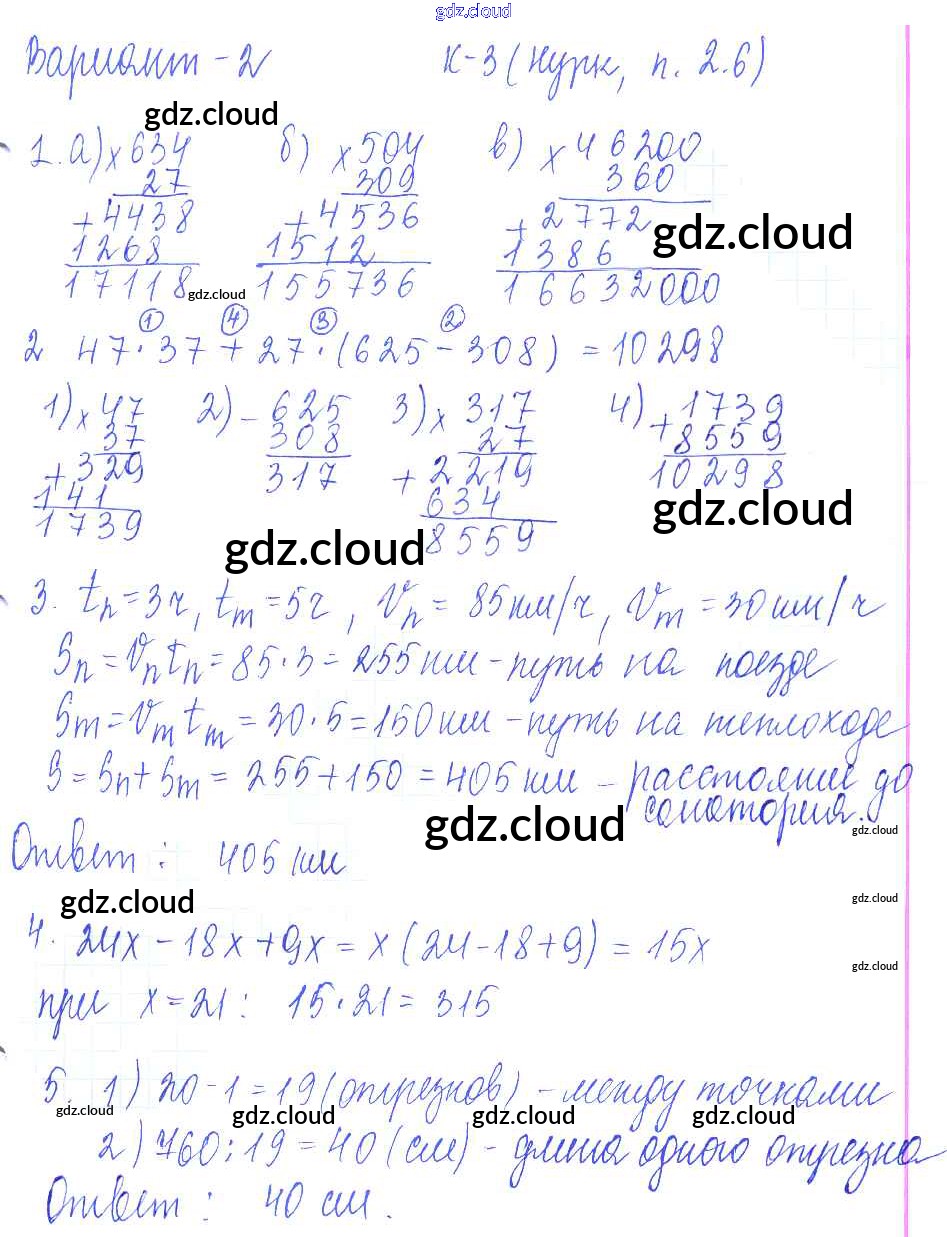 gdz.cloud
Вариант - 2 К-3 (Нурк, п. 2.6)
gdz.cloud
1. а) × 634 б) × 504 в) × 46200
27 309 360
+ 4438 + 4536 + 2772
1268 1512 1386 gdz.cloud
17118 gdz.cloud 155736 16632000
① ④ ③ ②
2 47 · 37 + 27 · (625 - 308) = 10298
1) × 47 2) - 625 3) × 317 4) + 1739
37 308 27 8559
+ 329 317 + 2219 10298
141 634 gdz.cloud
1739 gdz.cloud 8559
3. tп = 3ч, tт = 5ч, Vп = 85 км/ч, Vт = 30 км/ч
Sп = Vп tп = 85 · 3 = 255 км - путь на поезде
Sт = Vт tт = 30 · 5 = 150 км - путь на теплоходе
S = Sп + Sт = 255 + 150 = 405 км - расстояние до
санатория.
gdz.cloud gdz.cloud
Ответ: 405 км
gdz.cloud gdz.cloud
4. 24x - 18x + 9x = x (24 - 18 + 9) = 15x
gdz.cloud
при x = 21: 15 · 21 = 315
5. 1) 20 - 1 = 19 (отрезков) - между точками
gdz.cloud gdz.cloud gdz.cloud gdz.cloud
2) 760 : 19 = 40 (см) - длина одного отрезка
Ответ: 40 см.